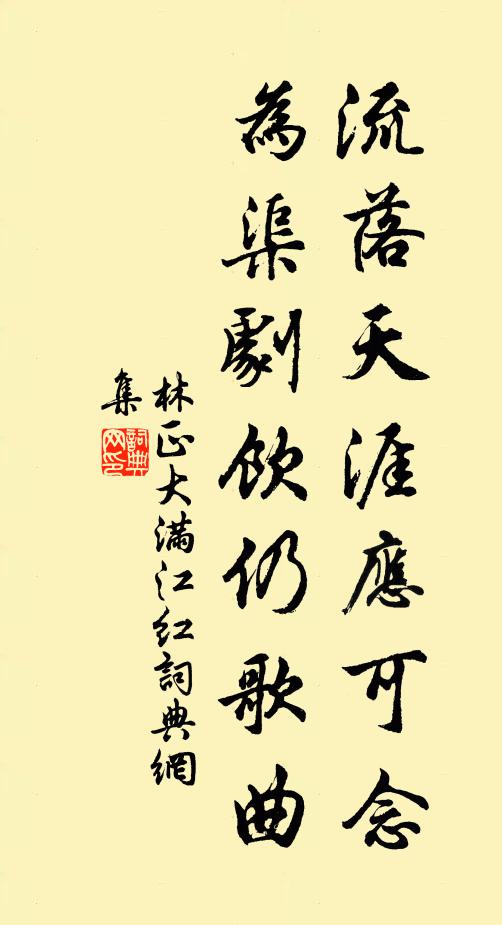 流落天涯應可念
為渠劇飲仍歌曲
林正大滿江紅詞典網
集
詞典网印